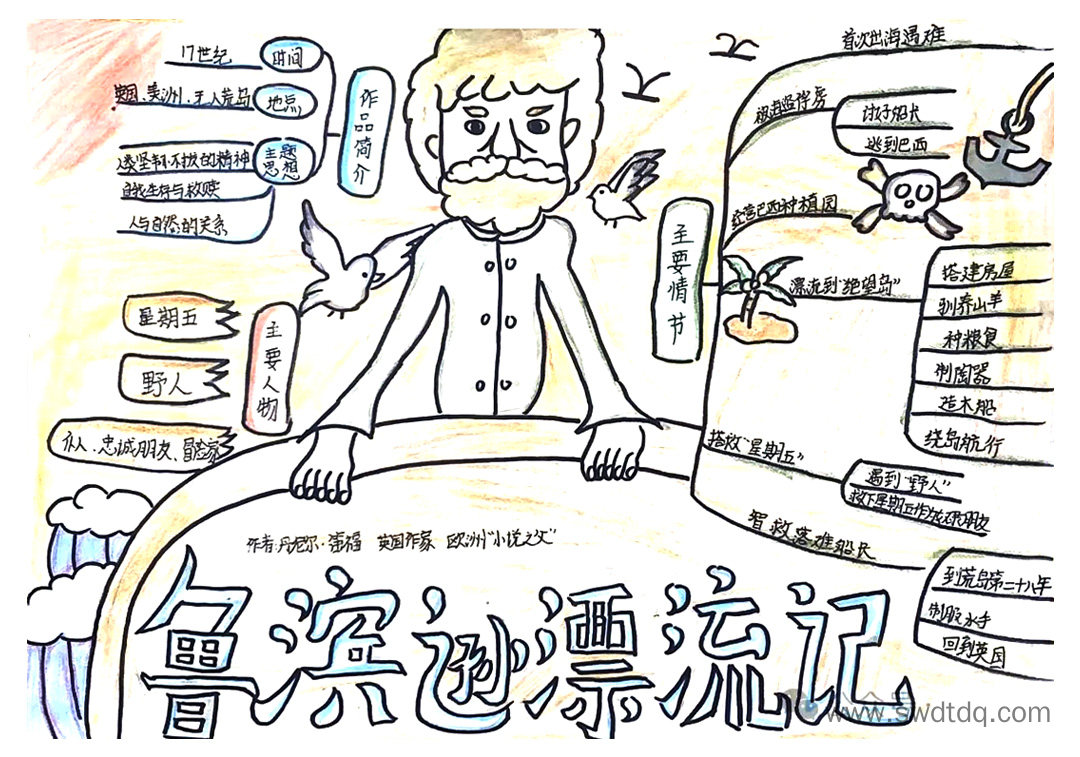 17世纪
时间
英国、美洲、无人荒岛
地点
人类坚韧不拔的精神
自我生存与救赎
人与自然的关系
主题思想
作品简介
星期五
野人
仆人、忠诚朋友、冒险家
主要人物
主要情节
首次出海遇难
被海盗俘虏
讨好船长
逃到巴西
经营巴西种植园
漂流到“绝望岛”
搭建房屋
驯养山羊
种粮食
制陶器
造木船
绕岛航行
搭救“星期五”
遇到“野人”
救下星期五作为奴仆朋友
智救落难船长
到荒岛第二十八年
制服水手
回到英国
作者:丹尼尔·笛福 英国作家 欧洲“小说之父”
鲁滨逊漂流记
www.swdtdq.com